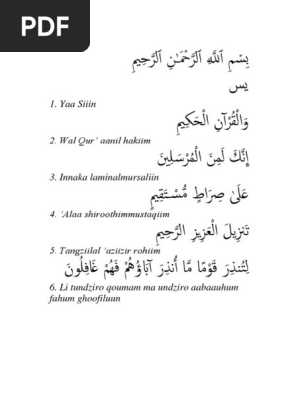 PDF
بِسْمِ اللَّهِ الرَّحْمَـٰنِ الرَّحِيمِ
يس
1. Yaa Siiin
وَالْقُرْآنِ الْحَكِيمِ
2. Wal Qur' aanil hakiim
إِنَّكَ لَمِنَ الْمُرْسَلِينَ
3. Innaka laminalmursaliin
عَلَىٰ صِرَاطٍ مُّسْتَقِيمٍ
4. 'Alaa shiroothimmustaqiim
تَنزِيلَ الْعَزِيزِ الرَّحِيمِ
5. Tangziilal 'aziizir rohiim
لِتُنذِرَ قَوْمًا مَّا أُنذِرَ آبَاؤُهُمْ فَهُمْ غَافِلُونَ
6. Li tundziro qoumam ma undziro aabaauhum
fahum ghoofiluun